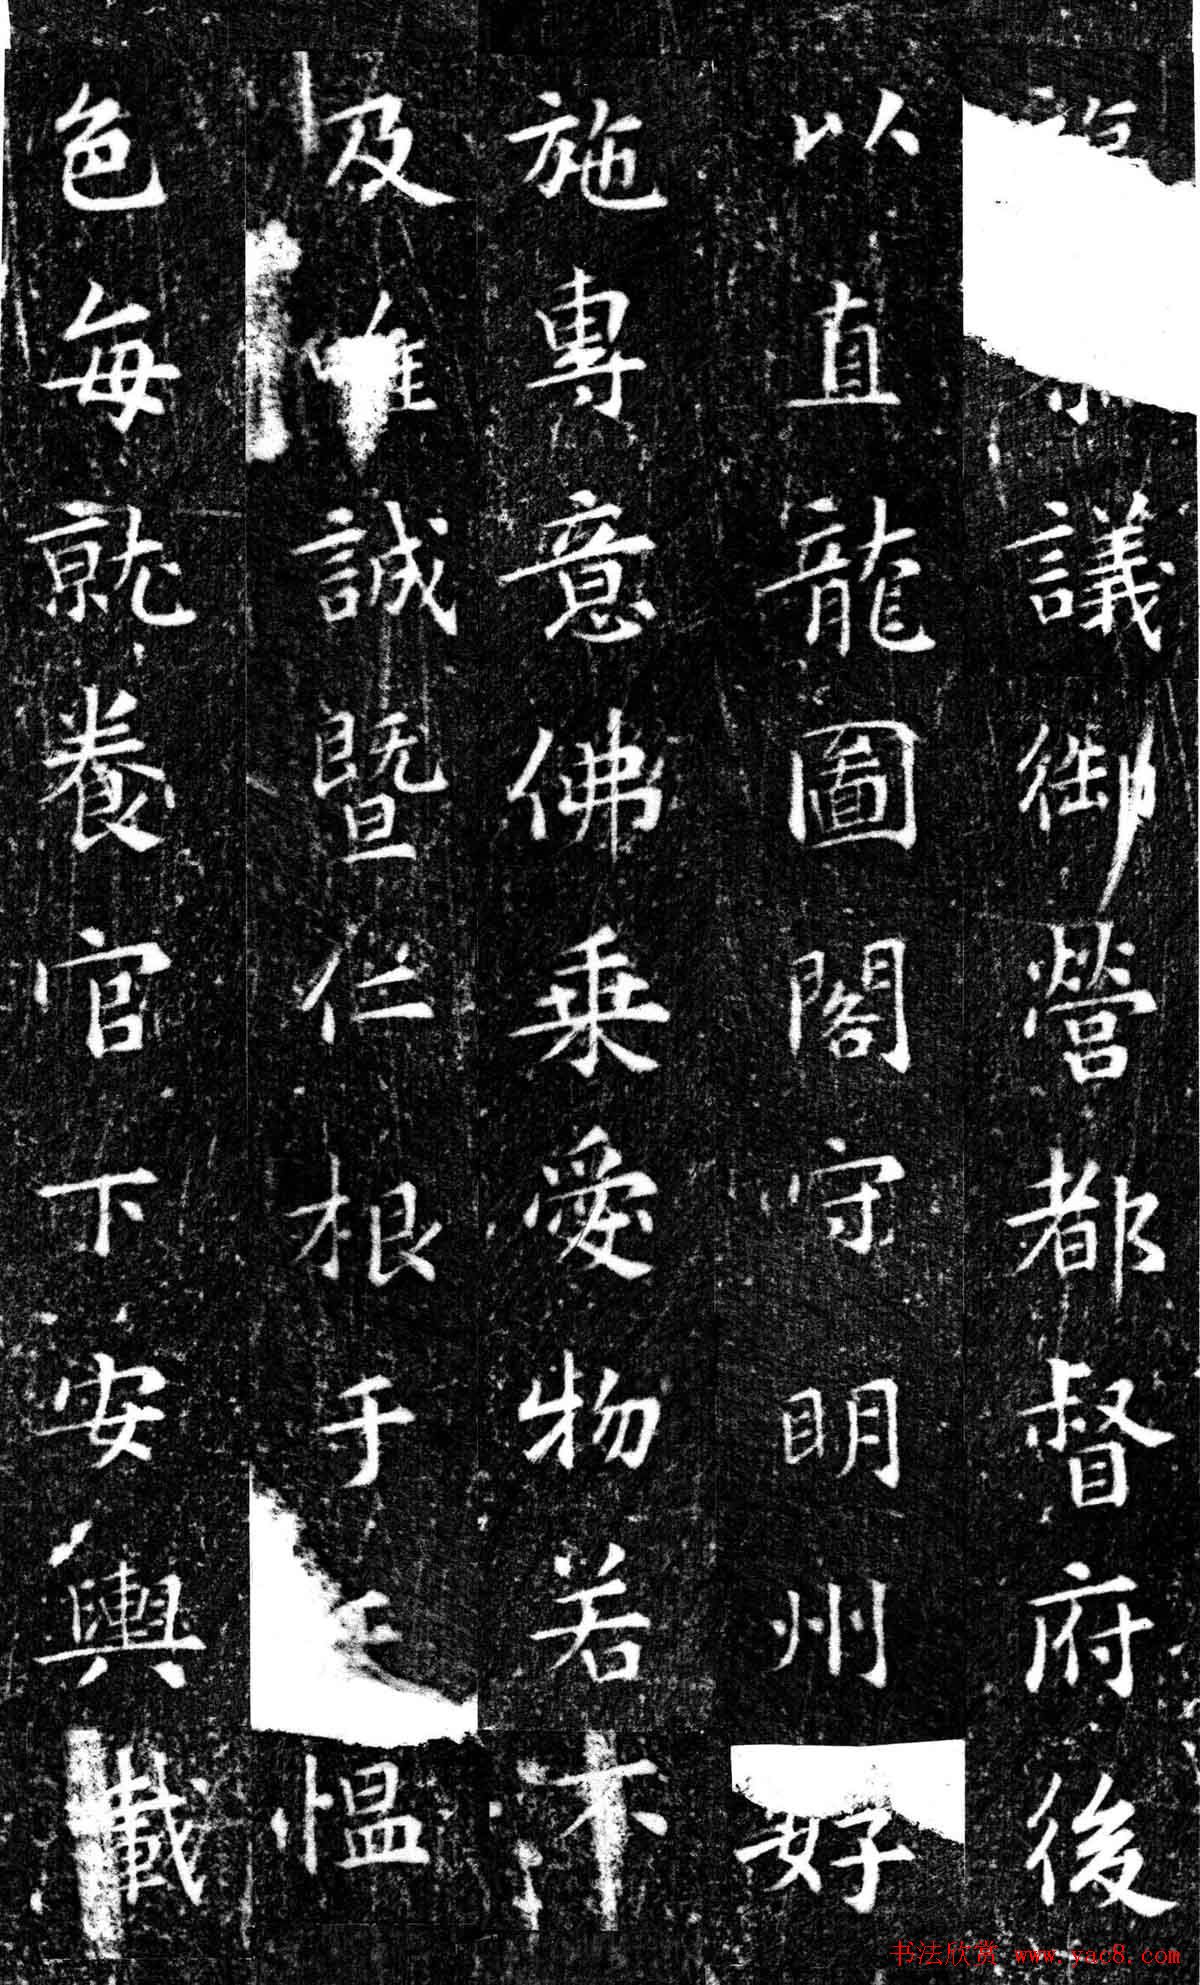 議御營都督府後
以直龍圖閣守眀州好
施專意佛乗愛物若不
及唯誠暨仁根于慍
色每就養官下安輿載
书法欣赏 www.yac8.com